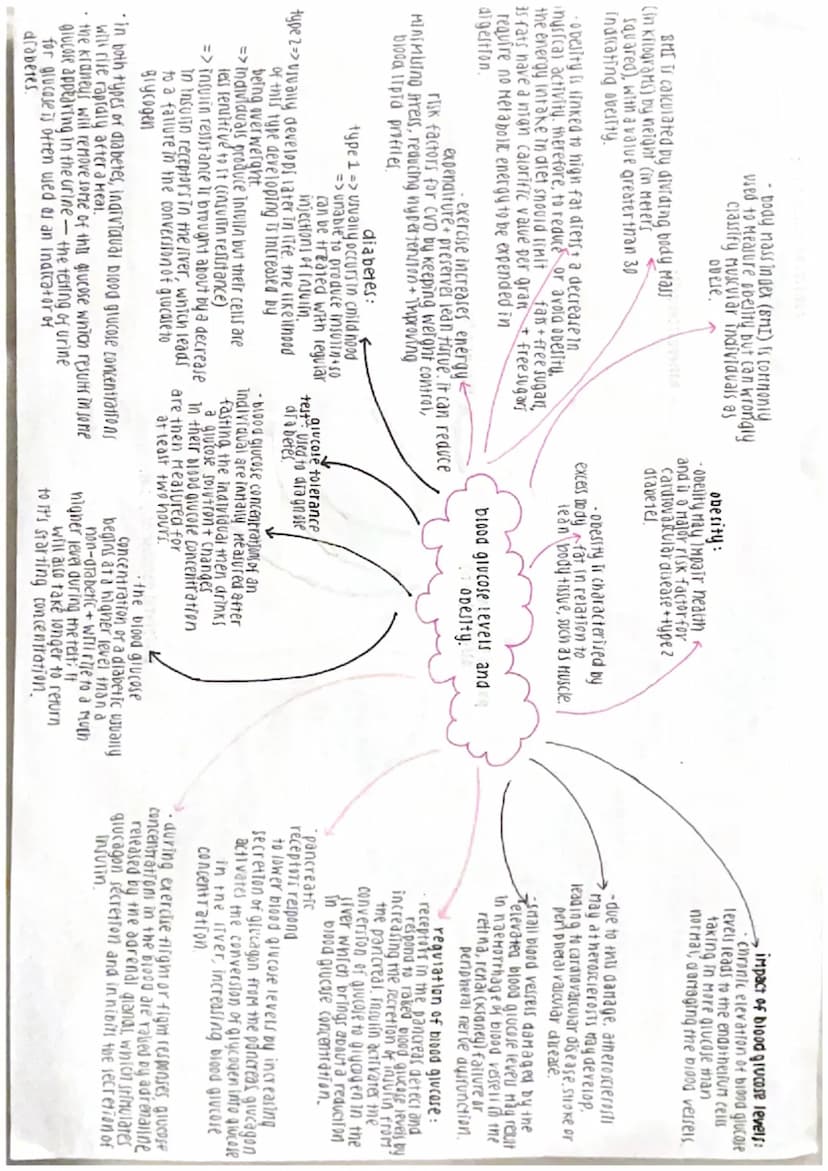 blood glucose levels and
obesity.
impact of blood glucose levels:
· chronic elevation of blood glucose
levels leads to the endothelium cells
taking in more glucose than
normal, damaging the blood vessels.
· due to this damage, atherosclerosis
may atherosclerosis may develop,
leading to cardiovascular disease, stroke or
peripheral vascular disease.
· small blood vessels damaged by the
elevated blood glucose levels may result
in haemorrhage of blood vessels in the
retina, renal (kidney) failure or
peripheral nerve dysfunction.
regulation of blood glucose:
· receptors in the pancreas detect and
respond to raised blood glucose levels by
increasing the secretion of insulin from
the pancreas. insulin activates the
conversion of glucose to glycogen in the
liver which brings about a reduction
in blood glucose concentration.
· pancreatic
receptors respond
to lower blood glucose levels by increasing
secretion of glucagon from the pancreas. glucagon
activates the conversion of glycogen into glucose
in the liver, increasing blood glucose
concentration
· during exercise flight or fight responses, glucose
concentrations in the blood are raised by adrenaline,
released by the adrenal glands, which stimulates
glucagon secretion and inhibits the secretion of
insulin.
obesity:
· obesity may impair health
and is a major risk factor for
cardiovascular disease + type 2
diabetes.
· obesity is characterised by
excess body fat in relation to
lean body tissue, such as muscle.
· body mass index (BMI) is commonly
used to measure obesity but can wrongly
classify muscular individuals as
obese.
BMI is calculated by dividing body mass
(in kilograms) by height (in meters
squared), with a value greater than 30
indicating obesity.
· obesity is linked to hight fat diets + a decrease in
physical activity. therefore, to reduce or avoid obesity,
the energy intake in diet should limit fats + free sugar,
as fats have a high calorific value per gram + free sugars
require no metabolic energy to be expended in
digestion.
· exercise increases energy
expenditure + preserves lean tissue. it can reduce
risk factors for CVD by keeping weight control,
minimising stress, reducing hypertension + improving
blood lipid profiles.
diabetes:
type 1 => usually occurs in childhood
=> unable to produce insulin + so
can be treated with regular
injection of insulin.
type 2 => usually develops later in life. the likelihood
of this type developing is increased by
being overweight
=> individuals produce insulin but their cells are
less sensitive to it (insulin resistance)
=> insulin resistance is brought about by a decrease
in insulin receptors in the liver, which leads
to a failure in the conversion of glucose to
glycogen
· in both types of diabetes, individual blood glucose concentrations
will rise rapidly after a meal.
· the kidneys will remove some of this glucose which results in some
glucose appearing in the urine — the testing of urine
for glucose is often used as an indicator of
diabetes.
glucose tolerance
test: used to diagnose
diabetes.
· blood glucose concentration of an
individual are initially measured after
fasting. the individual then drinks
a glucose solution + changes
in their blood glucose concentration
are then measured for
at least two hours.
· the blood glucose
concentration of a diabetic usually
begins at a higher level than a
non-diabetic + will rise to a much
higher level during the test. it
will also take longer to return
to it's starting concentration.